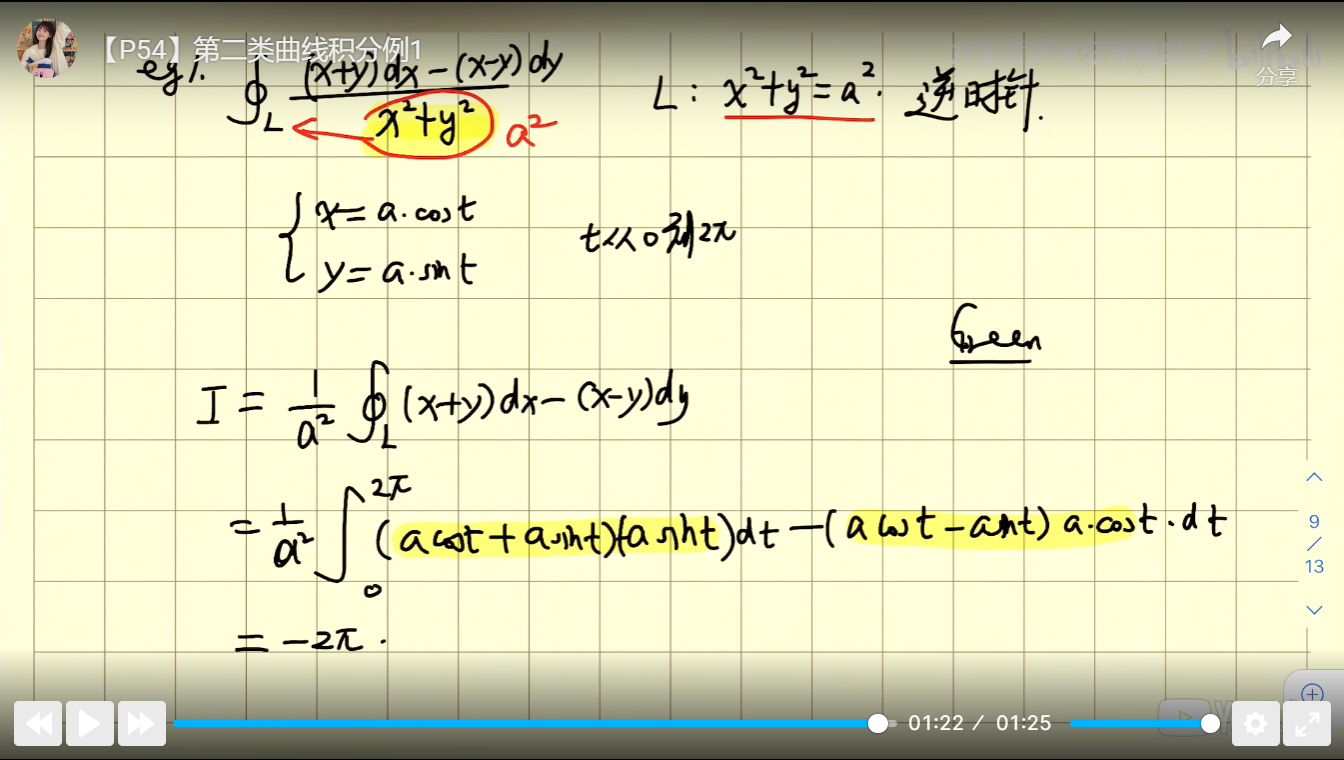 【P54】第二类曲线积分例1
分享
eg1. ∮_L ((x+y)dx-(x-y)dy)/(x²+y²) a² L: x²+y²=a². 逆时针.
{ x=a·cost
y=a·sint
t从0到2π
Green
I = 1/a² ∮_L (x+y)dx-(x-y)dy
= 1/a² ∫_0^{2π} (a cost + a sint)(a sint)dt - (a cost - a sint) a·cost·dt
= -2π.
9
/
13
01:22 / 01:25